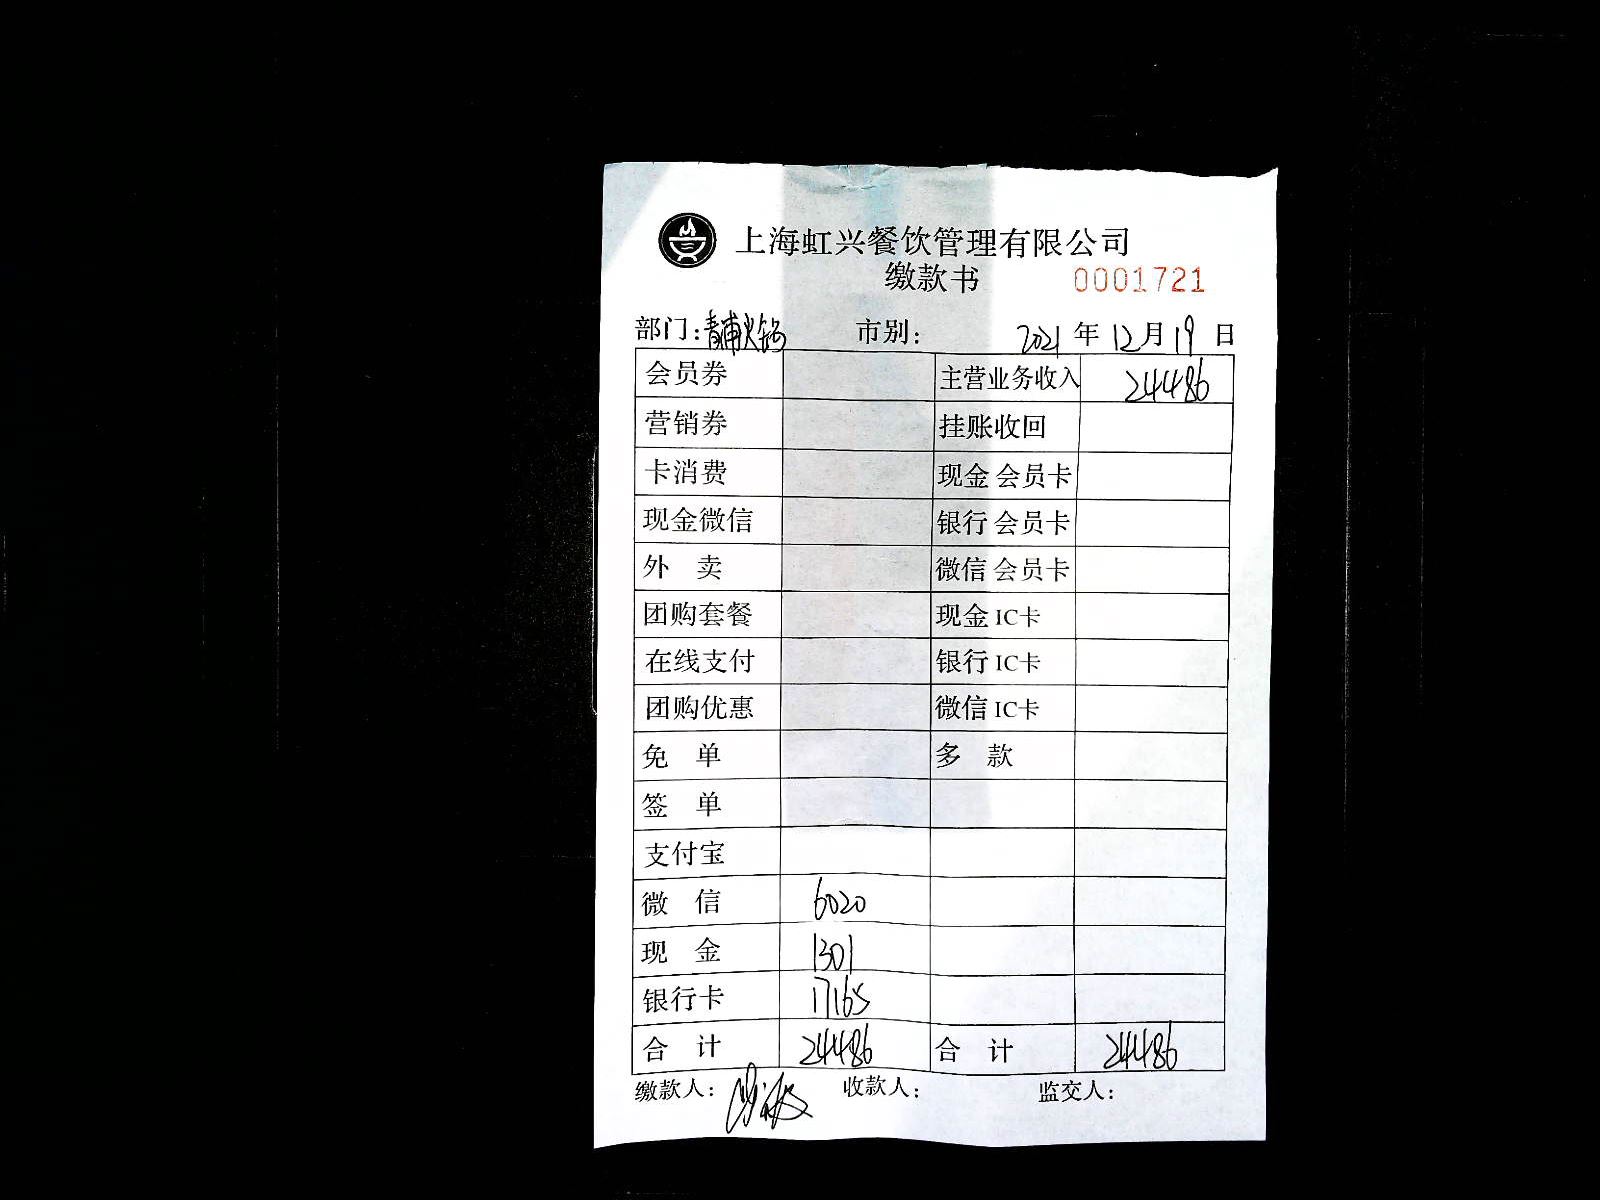 上海虹兴餐饮管理有限公司
缴款书 0001721
部门：青浦火锅 市别： 2021 年 12 月 19 日
会员券 主营业务收入 24486
营销券 挂账收回
卡消费 现金 会员卡
现金微信 银行 会员卡
外 卖 微信 会员卡
团购套餐 现金 IC卡
在线支付 银行 IC卡
团购优惠 微信 IC卡
免 单 多 款
签 单
支付宝
微 信 6020
现 金 1301
银行卡 17165
合 计 24486 合 计 24486
缴款人： 收款人： 监交人：